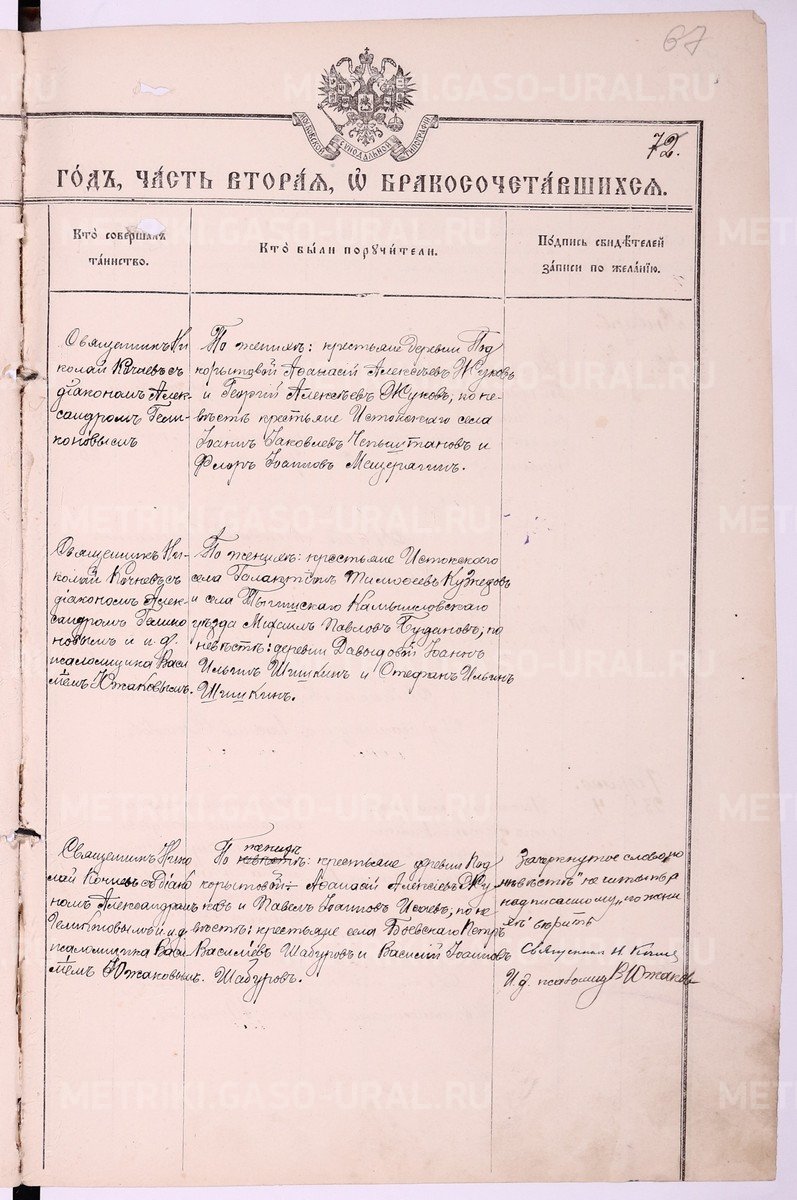 67
МОСКОВСКОЙ СѴНОДАЛЬНОЙ ТИПОГРАФІИ
72.
ГО́ДЪ, ЧА́СТЬ ВТОРА́Я, Ѡ҆ БРАКОСОЧЕТА́ВШИХСЯ.
Кто̀ соверша́лъ
та́инство.
Кто̀ бы́ли порꙋчи́тели.
По́дпись свидѣ́телей
за́писи по жела́нїю.
Священникъ Ни
колай Кочневъ съ
діакономъ Алек-
сандромъ Гели-
коновымъ
По женихѣ: крестьяне деревни Под
корытовой Аѳанасій Алексѣевъ Жуковъ
и Георгій Алексѣевъ Жуковъ, по не-
вѣстѣ крестьяне Истокскаго села
Іоаннъ Іаковлевъ Чепыштановъ и
Флоръ Іоанновъ Мещерягинъ.
Священникъ Ни-
колай Кочневъ съ
діакономъ Алек-
сандромъ Гелико
новымъ и и.д.
псаломщика Васи
ліемъ Южаковымъ.
По женихѣ: крестьяне Истокскаго
села Галактіонъ Тимоѳеевъ
и села Камышловскаго
уѣзда Михаилъ Павловъ Будановъ; по
невѣстѣ: деревни Давыдовой Іоаннъ
Ильинъ Шишкинъ и Стефанъ Ильинъ
Шишкинъ.
Священникъ Нико
лай Кочневъ съ діако
номъ Александромъ
Геликоновымъ и и.д.
псаломщика Васи
ліемъ Южаковымъ.
женихѣ
По невѣстѣ: крестьяне деревни Код
корытовой: Аѳанасій Алексѣевъ Жу
ковъ и Павелъ Іоанновъ Исаевъ; по не
вѣстѣ: крестьяне села Боевскаго Петръ
Василіевъ Шабуровъ и Василій Іоанновъ
Шабуровъ.
Зачеркнутое слово „по
невѣстѣ“ не читать, а
надписанному „по жени
хѣ“ вѣрить
Священникъ Н. Кочнев
И.д. псаломщ В Южаковъ
METRIKI.GASO-URAL.RU